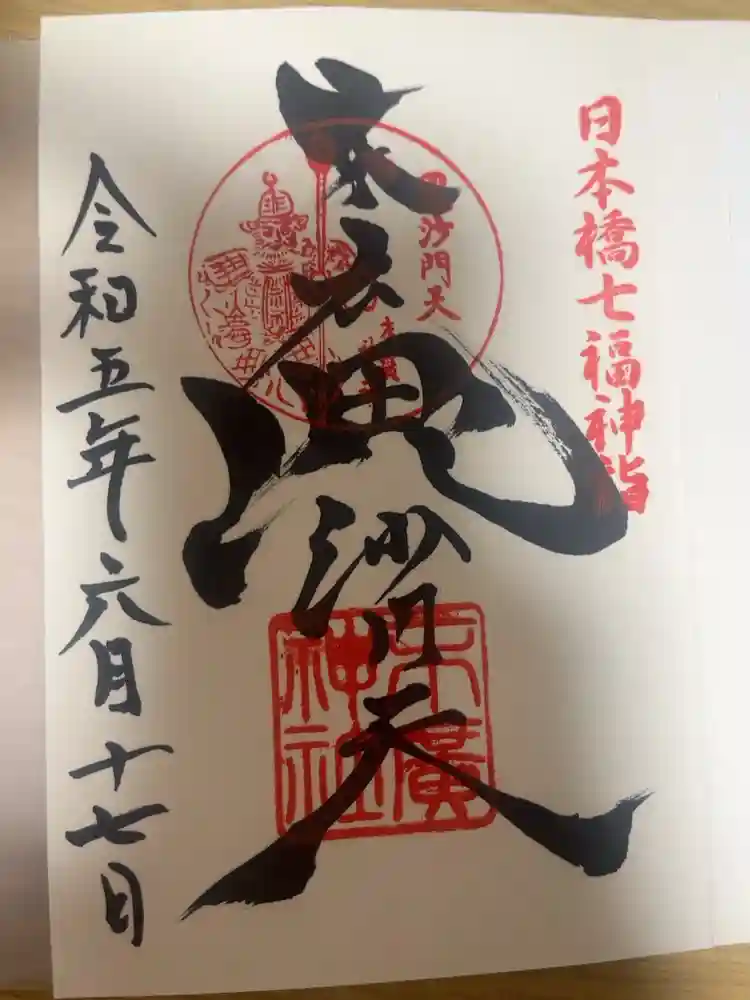 日本橋七福神詣
末広毘沙門天
毘沙門天
末廣
神社
令和五年六月十七日